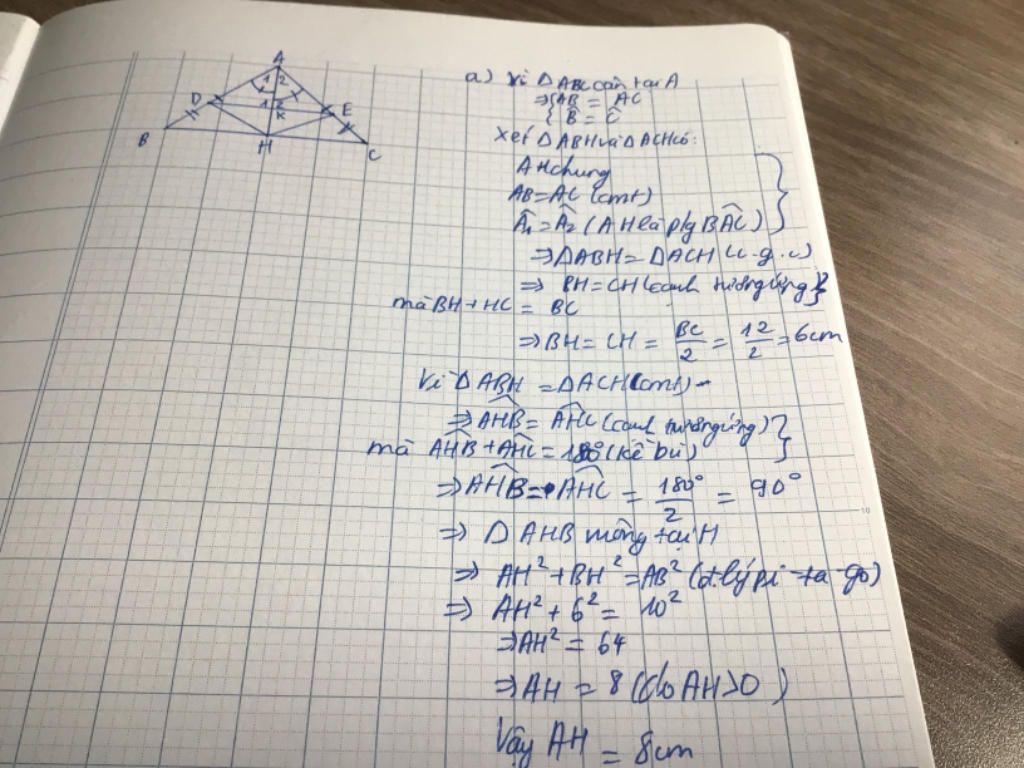 A
1 2
D
1 2
E
K
B
H
C
a) Vì ΔABC cân tại A
⇒ { AB = AC
{ B̂ = Ĉ
Xét ΔABH và ΔACH có:
AH chung
AB = AC (cmt)
Â₁ = Â₂ (AH là p/g BÂC) }
⇒ ΔABH = ΔACH (c.g.c)
⇒ BH = CH (cạnh tương ứng) }
mà BH + HC = BC
⇒ BH = CH = BC/2 = 12/2 = 6cm
Vì ΔABH = ΔACH (cmt)
⇒ AĤB = AĤC (cạnh tương ứng) }
mà AĤB + AĤC = 180° (kề bù)
⇒ AĤB = AĤC = 180°/2 = 90°
⇒ Δ AHB vuông tại H
⇒ AH² + BH² = AB² (đ.lý pi-ta-go)
⇒ AH² + 6² = 10²
⇒ AH² = 64
⇒ AH = 8 (do AH > 0)
Vậy AH = 8cm